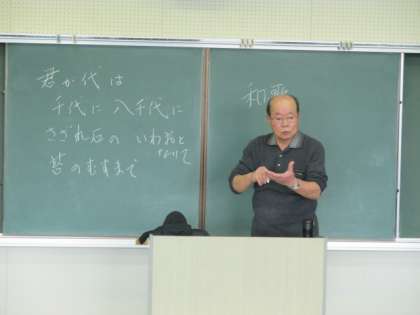 君が代は
千代に 八千代に
さざれ石の いわおと
なりて
苔のむすまで
和歌